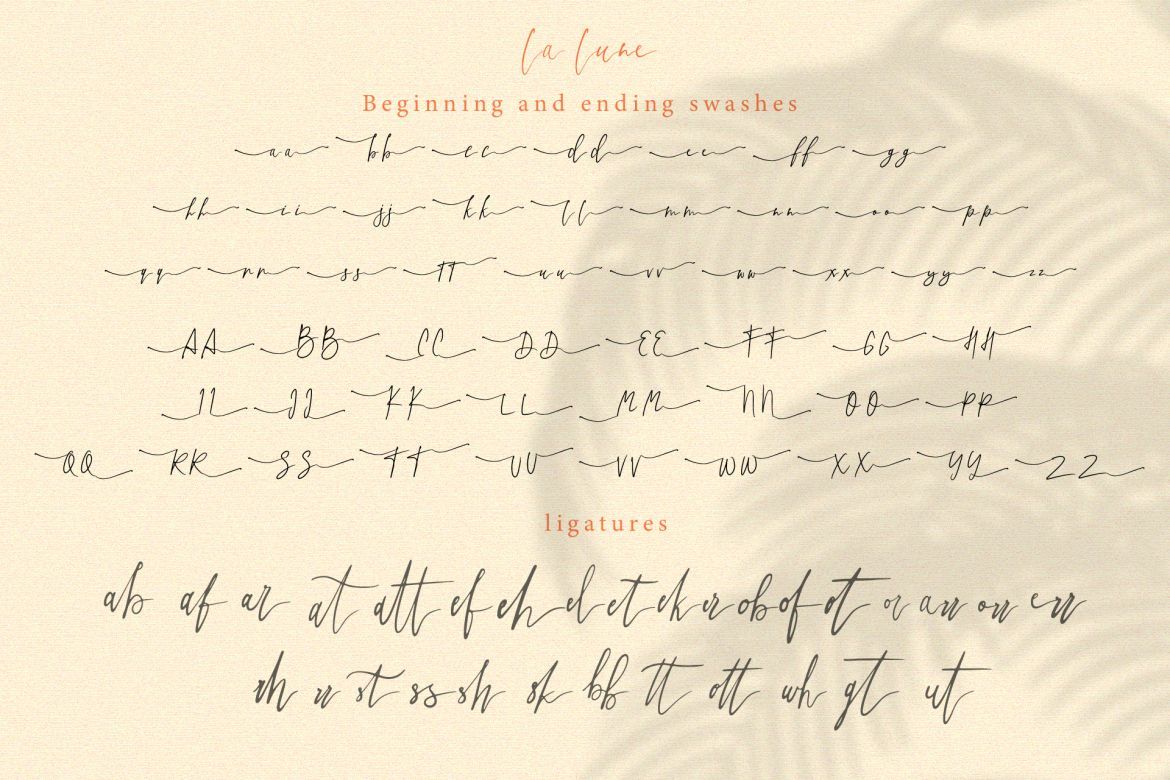 la lune
Beginning and ending swashes
aa bb cc dd ee ff gg
hh ii jj kk ll mm nn oo pp
qq rr ss tt uu vv ww xx yy zz
AA BB CC DD EE FF GG HH
II JJ KK LL MM NN OO PP
QQ RR SS TT UU VV WW XX YY ZZ
ligatures
ab af ar at att ef eh el et ek er ob of ot or arr orr err
rh rr st ss sh sk bb tt ott wh gt ut